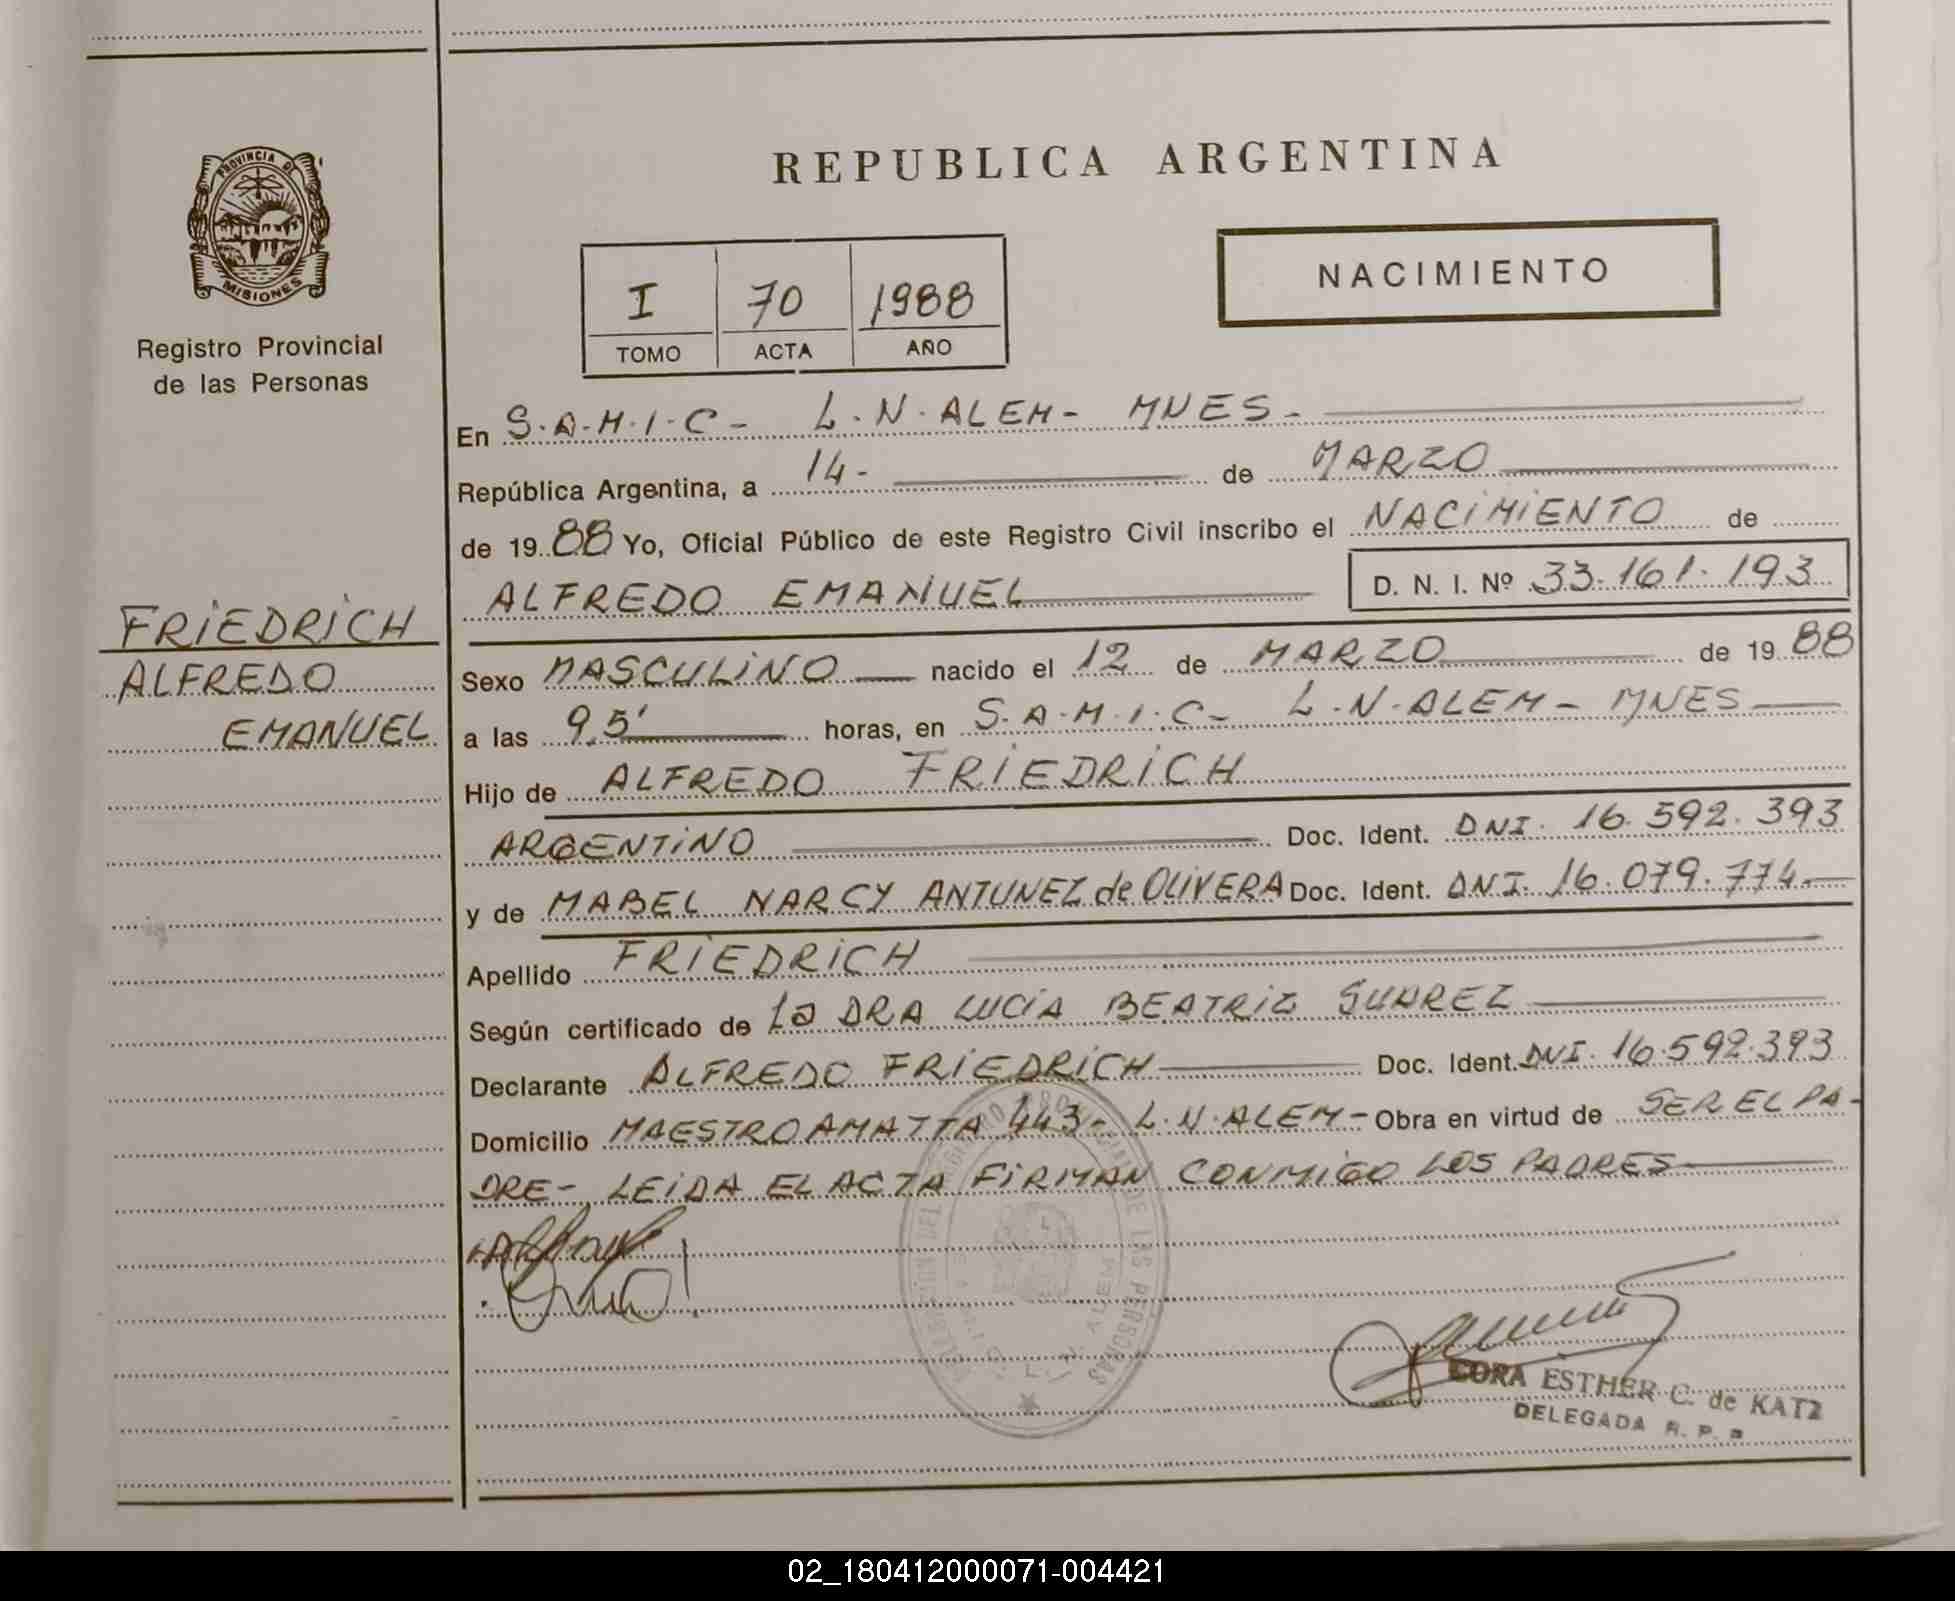 PROVINCIA DE
MISIONES
Registro Provincial
de las Personas
FRIEDRICH
ALFREDO
EMANUEL
REPUBLICA ARGENTINA
I 70 1988
TOMO ACTA AÑO
NACIMIENTO
En S.A.M.I.C- L.N.ALEM- MNES-
República Argentina, a 14- de MARZO
de 1988 Yo, Oficial Público de este Registro Civil inscribo el NACIMIENTO de
ALFREDO EMANUEL D. N. I. Nº 33.161.193
Sexo MASCULINO nacido el 12 de MARZO de 1988
a las 9,5' horas, en S.A.M.I.C- L.N.ALEM- MNES
Hijo de ALFREDO FRIEDRICH
ARGENTINO Doc. Ident. DNI. 16.592.393
y de MABEL NARCY ANTUNEZ de OLIVERA Doc. Ident. DNI. 16.079.774.-
Apellido FRIEDRICH
Según certificado de La DRA LUCIA BEATRIZ SUAREZ
Declarante ALFREDO FRIEDRICH Doc. Ident. DNI. 16.592.393
Domicilio MAESTRO AMATTA 443- L.N.ALEM- Obra en virtud de SER EL PA-
DRE- LEIDA EL ACTA FIRMAN CONMIGO LOS PADRES
DE LAS PERSONAS
CORA ESTHER C. de KATZ
DELEGADA R. P. P.
02_180412000071-004421